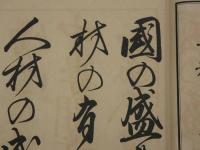 國の盛
材の有
人材の